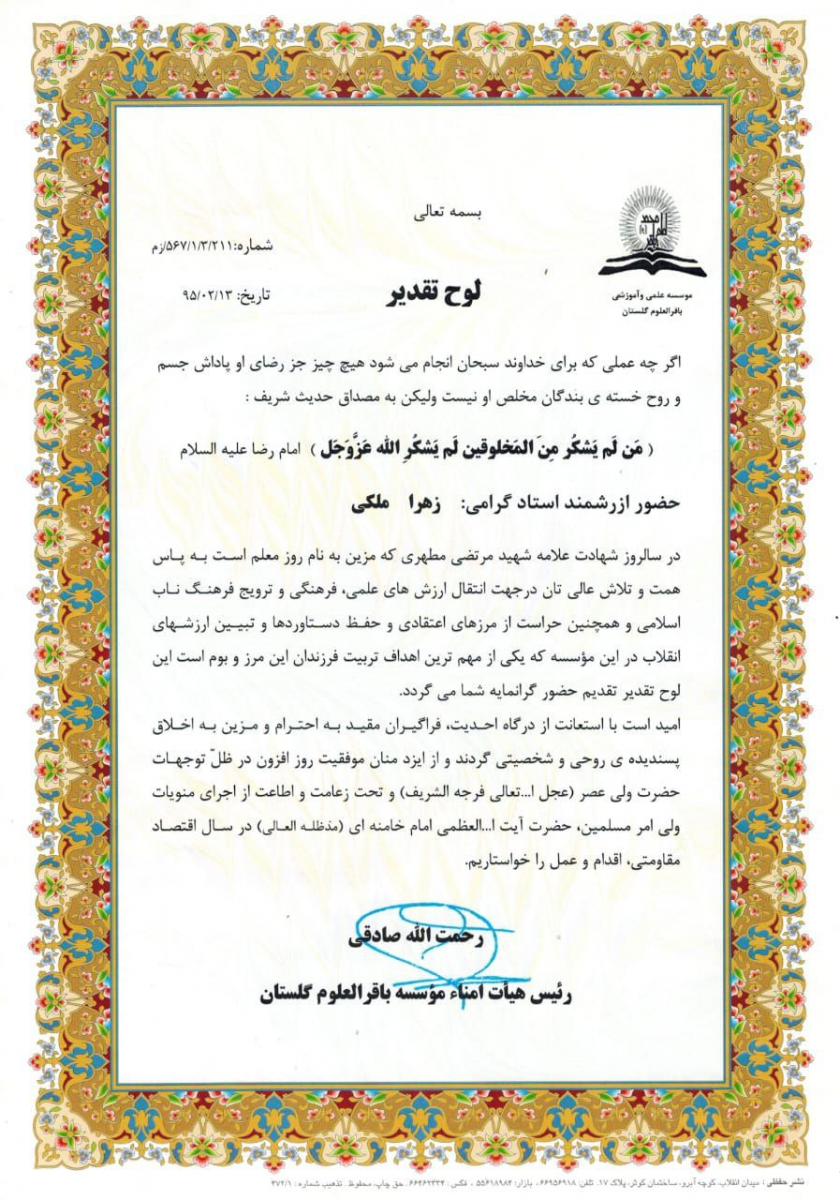 بسمه تعالی
شماره:۵۶۷/۱/۳/۲۱۱/زم
لوح تقدیر
تاریخ: ۹۵/۰۲/۱۳
موسسه علمی وآموزشی
باقرالعلوم گلستان
اگر چه عملی که برای خداوند سبحان انجام می شود هیچ چیز جز رضای او پاداش جسم
و روح خسته ی بندگان مخلص او نیست ولیکن به مصداق حدیث شریف :
( مَن لَم یَشکُر مِنَ المَخلوقین لَم یَشکُرِ الله عَزَّوَجَل ) امام رضا علیه السلام
حضور ارزشمند استاد گرامی: زهرا ملکی
در سالروز شهادت علامه شهید مرتضی مطهری که مزین به نام روز معلم است به پاس
همت و تلاش عالی تان درجهت انتقال ارزش های علمی، فرهنگی و ترویج فرهنگ ناب
اسلامی و همچنین حراست از مرزهای اعتقادی و حفظ دستاوردها و تبیین ارزشهای
انقلاب در این مؤسسه که یکی از مهم ترین اهداف تربیت فرزندان این مرز و بوم است این
لوح تقدیر تقدیم حضور گرانمایه شما می گردد.
امید است با استعانت از درگاه احدیت، فراگیران مقید به احترام و مزین به اخلاق
پسندیده ی روحی و شخصیتی گردند و از ایزد منان موفقیت روز افزون در ظلّ توجهات
حضرت ولی عصر (عجل ا...تعالی فرجه الشریف) و تحت زعامت و اطاعت از اجرای منویات
ولی امر مسلمین، حضرت آیت ا...العظمی امام خامنه ای (مدظله العالی) در سال اقتصاد
مقاومتی، اقدام و عمل را خواستاریم.
رحمت الله صادقی
رئیس هیأت امناء مؤسسه باقرالعلوم گلستان
نشر حفظی : میدان انقلاب، کوچه آبرو، ساختمان کوثر، پلاک ۱۷. تلفن: ۶۶۹۵۶۹۱۸، بازار: ۵۵۶۱۸۹۸۴ ، فکس : ۶۶۴۶۲۳۳۴. حق چاپ، محفوظ. تذهیب شماره : ۴۷۲/۱